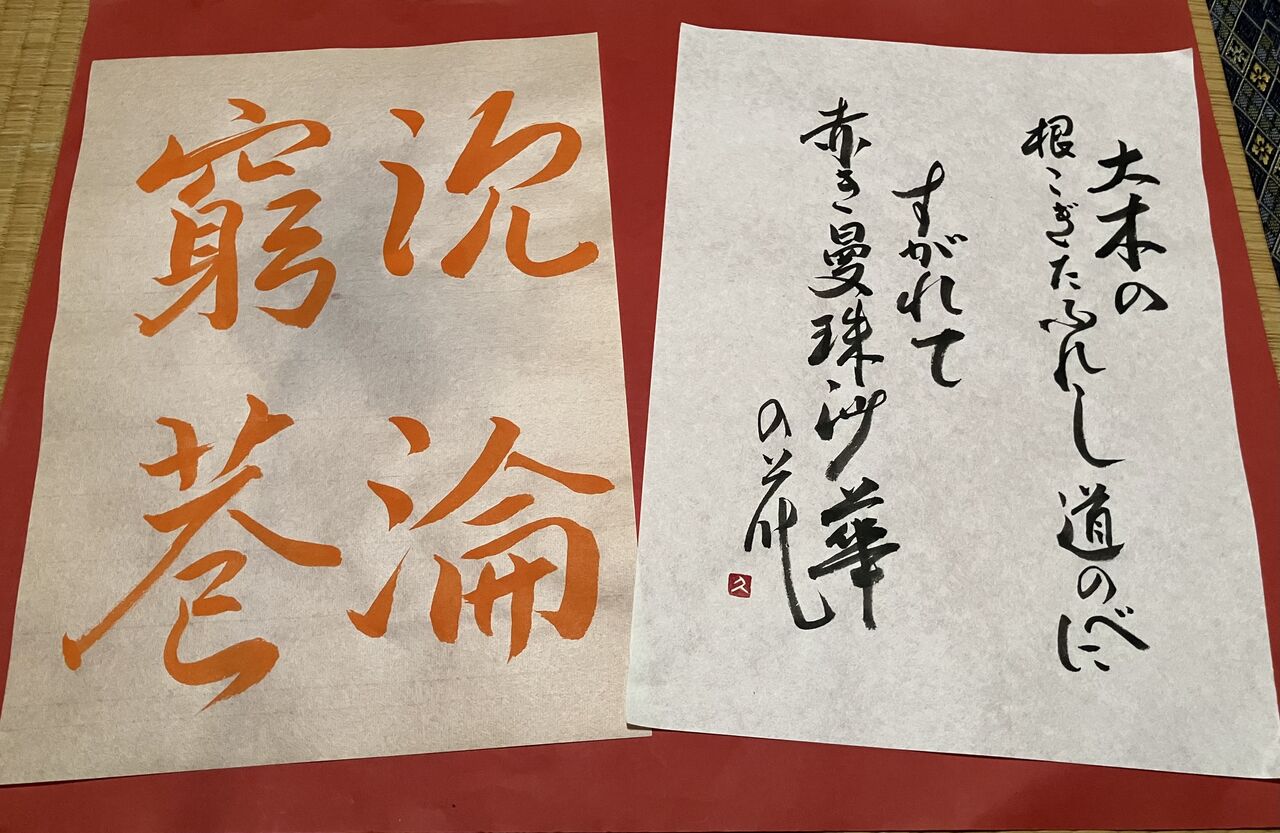 大木の
根こぎたふれし道のべに
すがれて
赤き曼珠沙華
の花
久
沈淪
窮巷